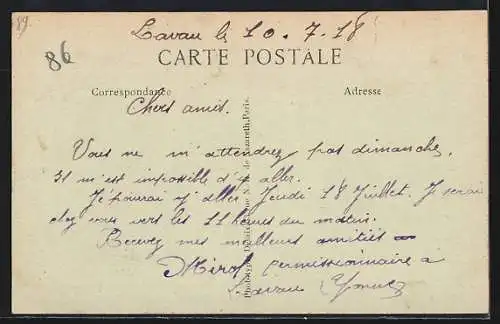 89
Lavau le 10.7.18
86
CARTE POSTALE
Correspondance
Adresse
Chers amis.
Vous ne m'attendrez pas dimanche,
Il m'est impossible d'y aller.
Je pourai y aller Jeudi 18 Juillet. Je serai
chez vous vers les 11 heures du matin.
Recevez mes meilleurs amitiés
permissionnaire a
Lavau (Yonne)